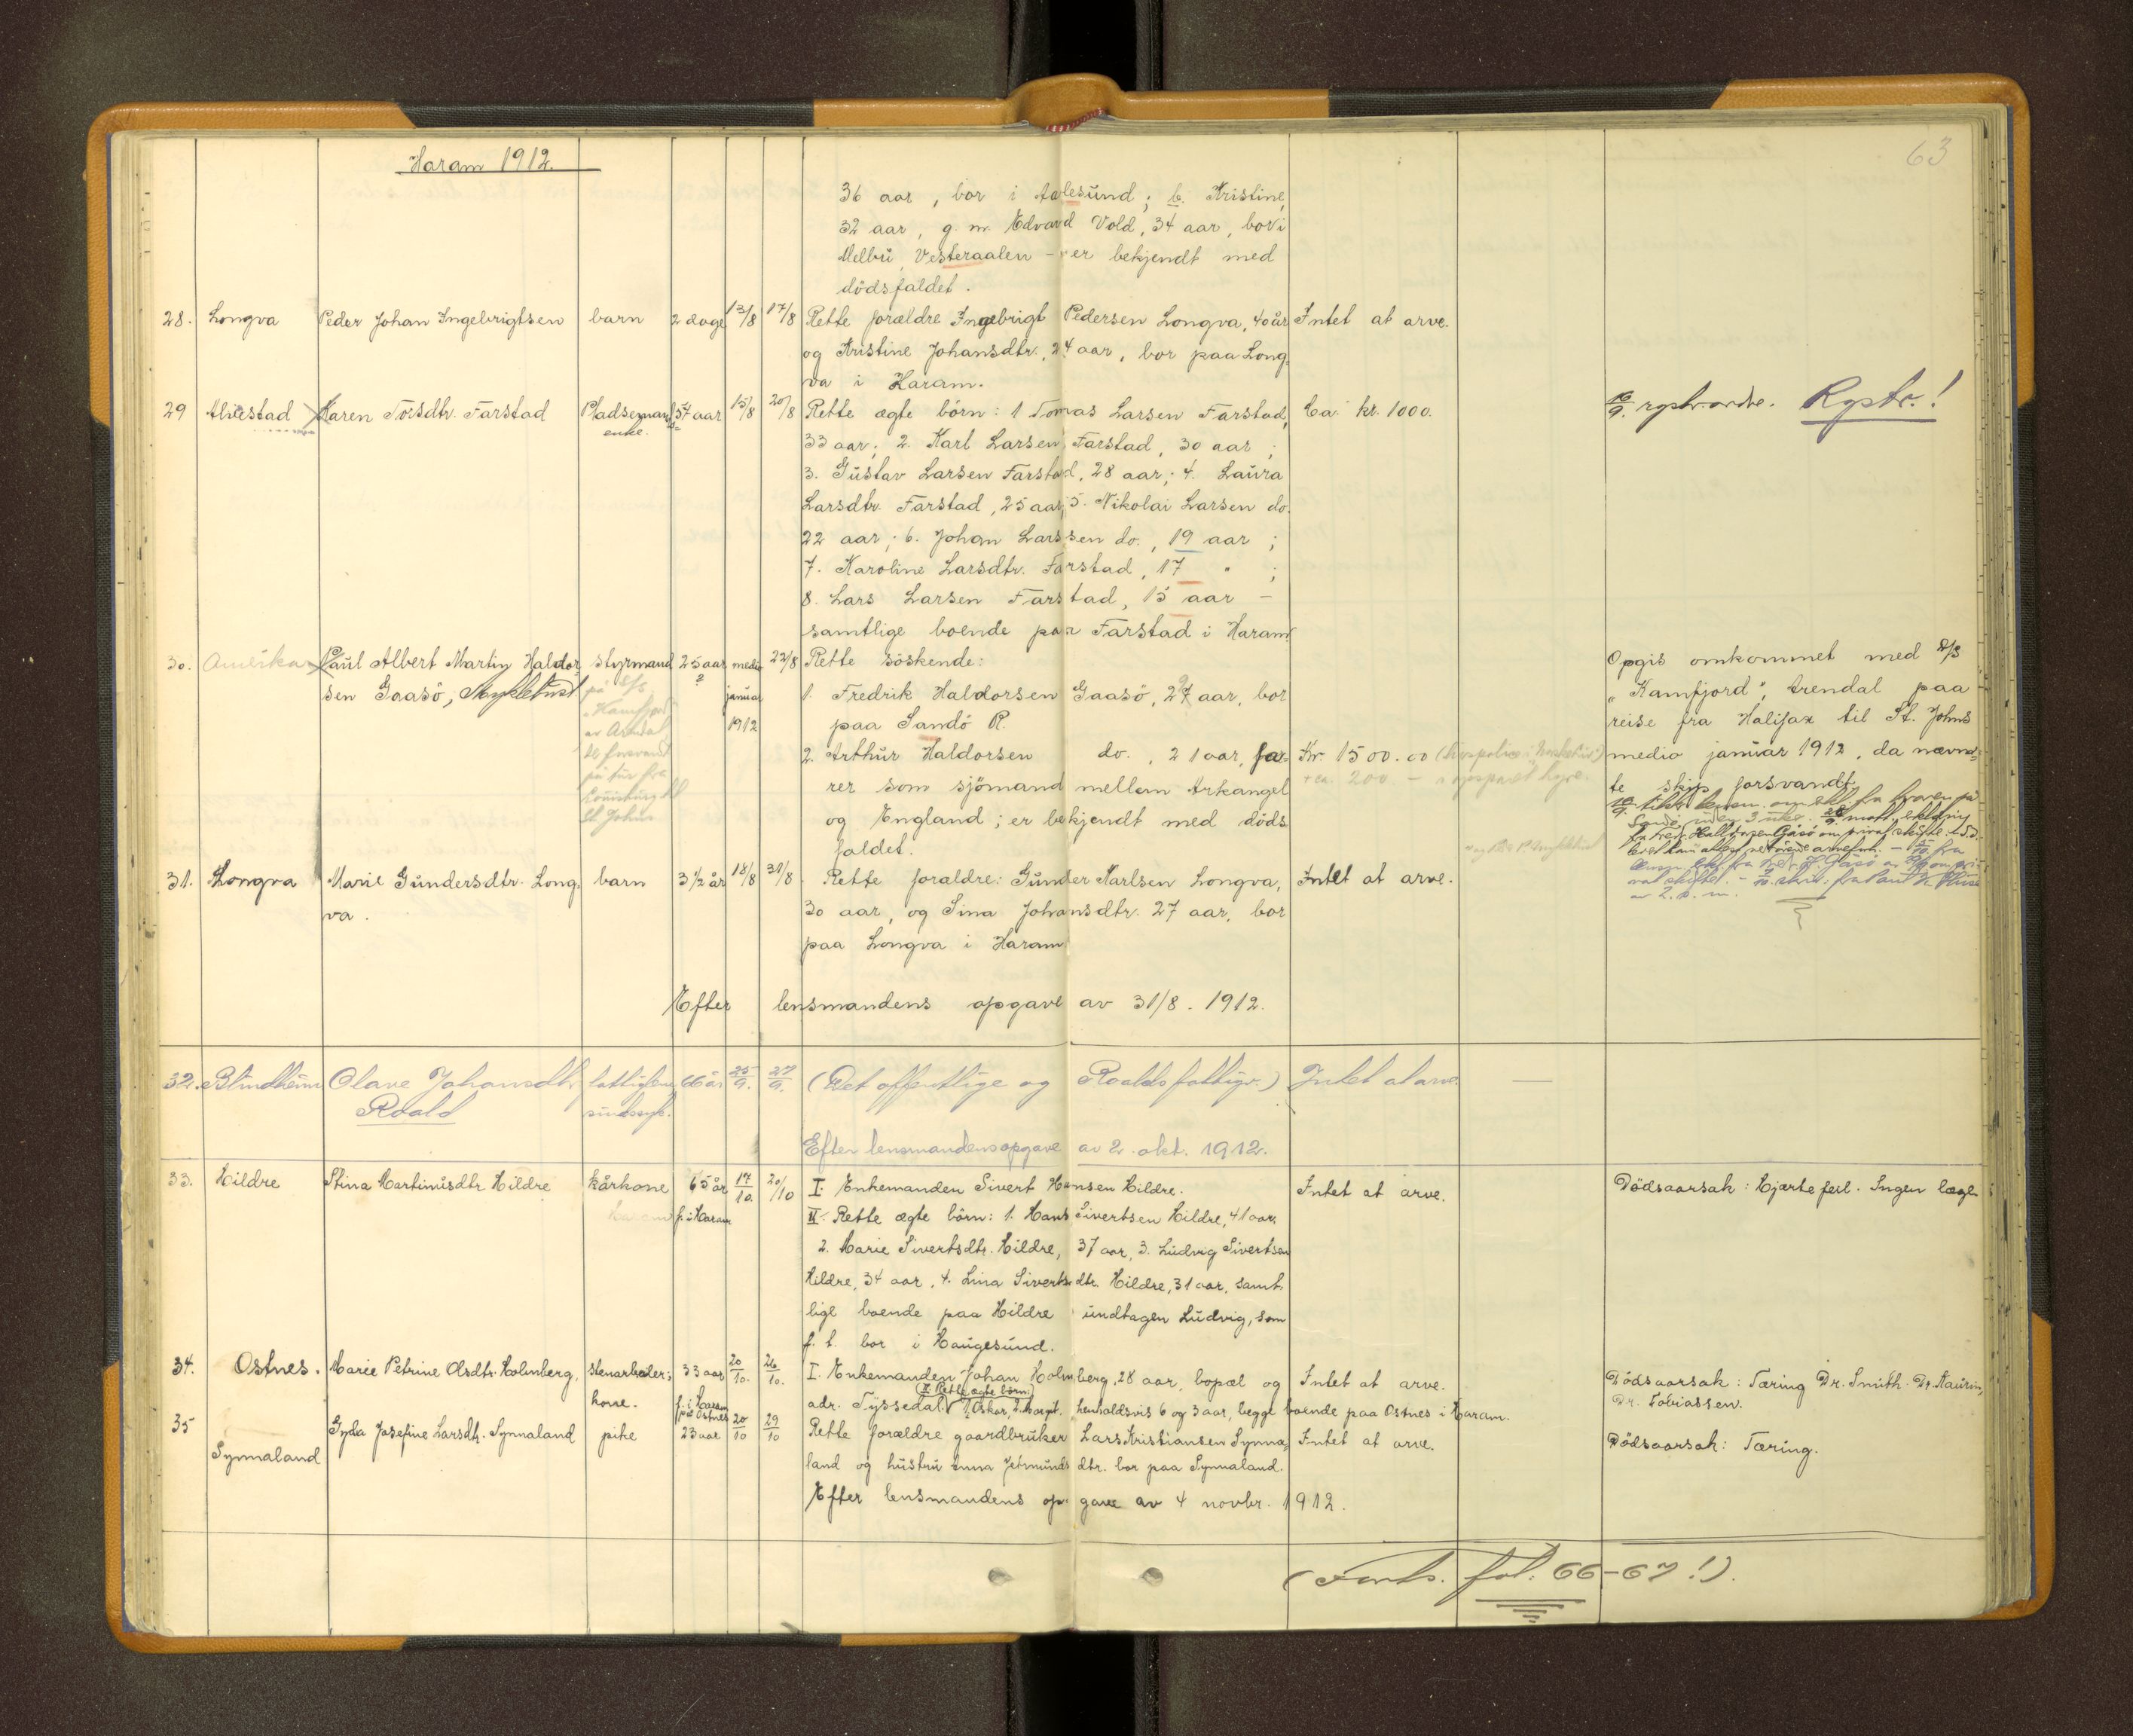 Haram 1912.
63
36 aar, bor i Aalesund; 6. Kristine,
32 aar, g. m. Edvard Vold, 34 aar, bor i
Melbu, Vesteraalen - er bekjendt med
dödsfaldet.
28. Longva Peder Johan Ingebrigtsen barn 2 dage 13/8 17/8 Rette forældre Ingebrigt Pedersen Longva, 40 år Intet at arve.
og Kristine Johansdtr., 24 aar, bor paa Long-
va i Haram.
29 Alvestad Karen Torsdtr. Farstad Pladsemands 57 aar 15/8 20/8 Rette ægte börn: 1 Tomas Larsen Farstad, Ca. kr. 1000. 10/9. rgstr. ordre. Rgstr.!
enke. 33 aar; 2. Karl Larsen Farstad, 30 aar;
3. Gustav Larsen Farstad, 28 aar; 4. Laura
Larsdtr. Farstad, 25 aar; 5. Nikolai Larsen do.
22 aar; 6. Johan Larssen do., 19 aar;
7. Karoline Larsdtr. Farstad, 17 " ;
8. Lars Larsen Farstad, 15 aar -
samtlige boende paa Farstad i Haram
30. Amerika Paul Albert Martin Haldor styrmand 25 aar medio 22/8 Rette söskende: Opgis omkommet med D/S
sen Gaasö, Mykletust på S/S ? januar 1. Fredrik Haldorsen Gaasö, 27 aar, bor "Kamfjord", Arendal paa
"Kamfjord" 1912 paa Sandö R. reise fra Halifax til St. Johns
av Arendal 2. Arthur Haldorsen do., 21 aar, fa- Kr. 1500.00 medio januar 1912, da nævn-
forsvandt rer som sjömand mellem Arkangel + ca. 200 - hyre. te skip forsvandt.
på tur fra og England; er bekjendt med döds
Louisburg til faldet.
St. Johns
31. Longva Marie Gundersdtr. Long- barn 3 1/2 år 18/8 31/8 Rette foraldre: Gunder Karlsen Longva, Intet at arve.
va. 30 aar, og Sina Johansdtr. 27 aar, bor
paa Longva i Haram
Efter lensmandens opgave av 31/8. 1912.
32. Blindheim Olave Johansdtr. fattiglem 66 år 25/9. 27/9. (Det offentlige og Roalds fattigv.) Intet at arve. —
Roald sindssyk.
Efter lensmandens opgave av 2. okt. 1912.
33. Hildre Stina Martinusdtr. Hildre kårkone 65 år 17/10. 20/10 I. Enkemanden Sivert Hansen Hildre. Intet at arve. Dödsaarsak: Hjertefeil. Ingen læge
f. i Haram II. Rette ægte börn: 1. Hans Sivertsen Hildre, 41 aar,
2. Marie Sivertsdtr. Hildre, 37 aar, 3. Ludvig Sivertsen
Hildre, 34 aar, 4. Lina Sivertsdtr. Hildre, 31 aar, samt-
lige boende paa Hildre undtagen Ludvig, som
f. t. bor i Haugesund.
34. Ostnes. Marie Petrine Olsdtr. Holmberg, stenarbeider- 33 aar 20/10. 26/10. I. Enkemanden Johan Holmberg, 28 aar, bopæl og Intet at arve. Dödsaarsak: Tæring Dr. Smith. Dr. Kaurin,
kone. f. i Haram på Ostnes adr. Tyssedal. II. Rette ægte börn: 1. Oskar, 2. Margit. henholdsvis 6 og 3 aar, begge boende paa Ostnes i Haram. Dr. Tobiassen.
35 Synnaland Gyda Josefine Larsdtr. Synnaland pike 23 aar 20/10 29/10 Rette forældre gaardbruker Lars Kristiansen Synna- Intet at arve. Dödsaarsak: Tæring.
land og hustru Anna Jetmundsdtr. bor paa Synnaland.
Efter lensmandens opgave av 4 novbr. 1912.
(Forts. fol. 66-67!).